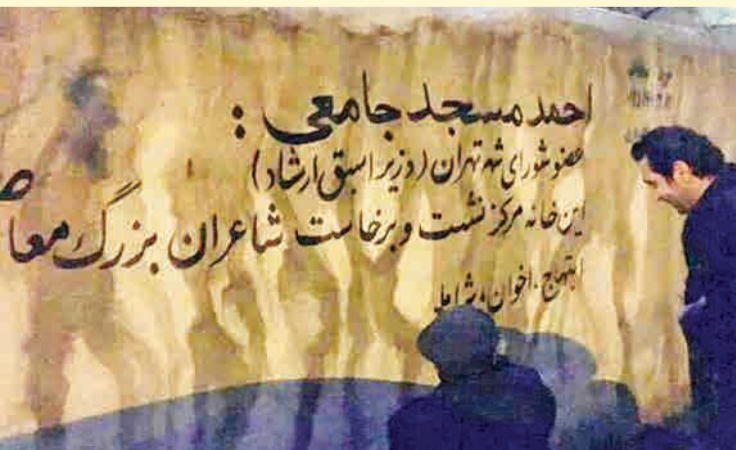 احمد مسجد جامعی :
عضو شورای شهر تهران (وزیر اسبق ارشاد)
این خانه مرکز نشست و برخاست شاعران بزرگ معا
ابتهاج، اخوان، شاملو